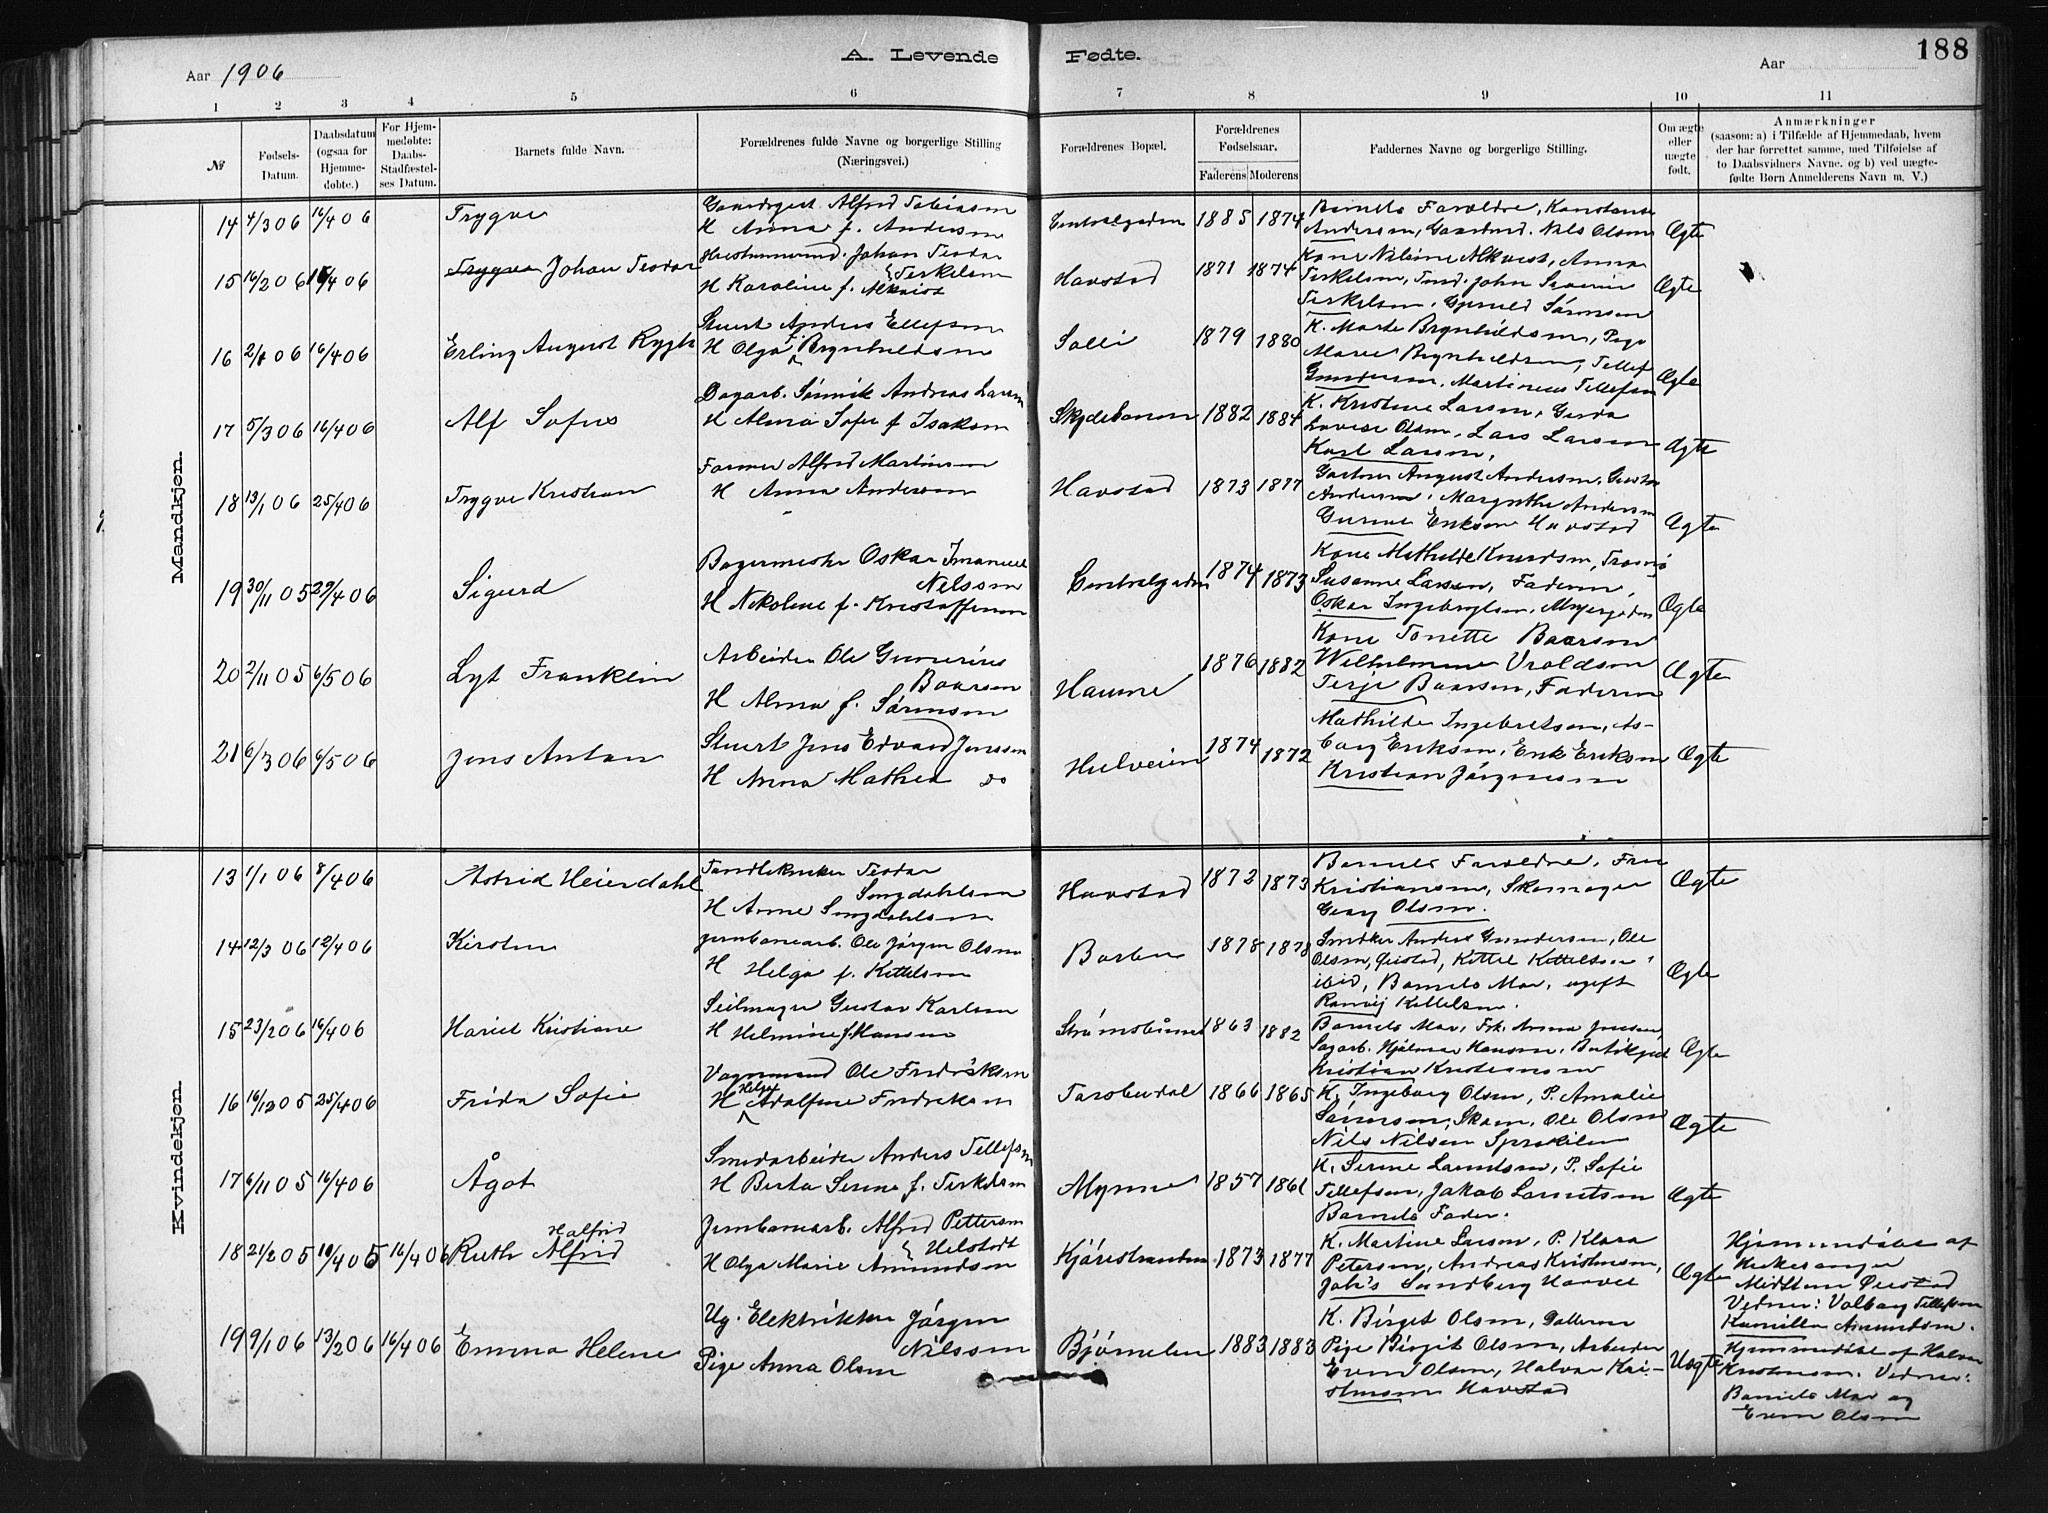 Aar 1906
A. Levende Fødte.
Aar
188
1 2 3 4 5 6 7 8 9 10 11
№
Fødsels-Datum.
Daabsdatum (ogsaa for Hjemmedøbte.)
For Hjemmedøbte: Daabs-Stadfæstelses Datum.
Barnets fulde Navn.
Forældrenes fulde Navne og borgerlige Stilling (Næringsvei.)
Forældrenes Bopæl.
Forældrenes Fødselsaar.
Faderens Moderens
Faddernes Navne og borgerlige Stilling.
Om ægte eller uægte født.
Anmærkninger
(saasom: a) i Tilfælde af Hjemmedaab, hvem der har forrettet samme, med Tilføielse af to Daabsvidners Navne. og b) ved uægtefødte Børn Anmelderens Navn m. V.)
Mandkjøn.
14 4/3 06 16/4 06 Trygve
Alfred Tobiassen
H Anna f. Andersen
Centralgaden 1885 1874
Barnets Forældre, Konstanse
Andersen, Nils Olsen
Ægte
15 16/2 06 16/4 06 Trygve Johan Teodor
Johan Teodor
Terkelsen
H Karoline f. Alkvist
Havstad 1871 1874
Kone Nilsine Alkvist, Anna
Terkelsen, John Severin
Terkelsen, Sørensen
Ægte
16 06 16/4 06 Erling August Rygh
Stuert Anders Ellefsen
H Olga Brynhildsen
Solli 1879 1880
K. Marte Brynhildsen, Pige
Marie Brynhildsen, Tellef
Gundersen, Martinius Tellefsen
Ægte
17 5/3 06 16/4 06 Alf Sofus
Dagarb. Andreas Larsen
H Alma Sofie f Isaksen
Skydebanen 1882 1884
K. Kristine Larsen, Gerda
Lovise Olsen, Lars Larsen
Karl Larsen,
Ægte
18 13/1 06 25/4 06 Trygve Kristian
Former Alfred Martinsen
H Anna Andersen
Havstad 1873 1877
Gartner August Andersen,
Andersen, Margrethe Andersen
Eriksen Havstad
Ægte
19 30/11 05 29/4 06 Sigurd
Bagermester Oskar Imanuel
Nilssen
H Nikoline f. Kristoffersen
Centralgaden 1874 1873
Kone Mathilde Knudsen, Tromø
Susanne Larsen, Faderen,
Oskar Ingebrigtsen,
Ægte
20 2/11 05 6/5 06 Lyt Franklin
Arbeider Ole Gunerius
Baarsen
H Alma f. Sørensen
1876 1882
Kone Tonette Baarsen
Wilhelmine Vroldsen
Terje Baarsen, Faderen
Ægte
21 6/3 06 6/5 06 Jens Anton
Stuert Jens Edvard Jenssen
H Anna Mathea do
Hulveien 1874 1872
Mathilde Ingebretsen, As-
borg Eriksen, Erik Eriksen
Kristian Jørgensen
Ægte
Kvindekjøn.
13 1/1 06 8/4 06 Astrid Heierdahl
Tandtekniker Teodor
Songdahlsen
H Anne Songdahlsen
Havstad 1872 1873
Barnets Forældre, Fru
Kristiansen, Skomager
Georg Olsen.
Ægte
14 12/3 06 12/4 06 Kirsten
Jernbanearb. Ole Jørgen Olsen
H Helga f. Kittelsen
Barbu 1878 1878
Anders Gundersen, Ole
Olsen, Øiestad, Kittel Kittelsen
ibid, Barnets Mor, ugift
Ranvej Kittelsen.
Ægte
15 23/2 06 16/4 06 Kristiane
Seilmager Gustav Karlsen
H Helmine f. Hansen
1863 1882
Barnets Mor, Frk. Anna Jensen
Sagarb. Hjalmar Hansen,
Kristian Kristensen
Ægte
16 16/12 05 25/4 06 Frida Sofie
Vognmand Ole Fredriksen
H Helga Adolfine Fredriksen
1866 1865
K. Ingeborg Olsen, P. Amalie
Sørensen, Skom. Ole Olsen
Nils Nilsen
Ægte
17 6/11 05 16/4 06 Ågot
Smedarbeider Anders Tellefsen
H Berta Serine f. Terkelsen
Myrene 1857 1861
K. Serine Larsen, P. Sofie
Tellefsen, Jakob
Barnets Fader.
Ægte
18 21/2 05 10/4 05 16/4 06 Ruth Halfrid Alfrid
Jernbanearb. Alfred Pettersen
Helstedt
H Olga Marie Amundsen
1873 1877
K. Martine Larsen, P. Klara
Petersen, Andreas Kristensen,
Joh's Sundberg
Ægte
Hjemmedøbt af
Kirkesanger
Midttun Øiestad
Vidner: Valborg Tellefsen
Kamilla Amundsen.
19 9/1 06 13/2 06 16/4 06 Emma Helene
Ug. Elektriker Jørgen
Nilssen
Pige Anna Olsen
Bjørnelien 1883 1883
K. Birget Olsen,
Pige Birgit Olsen, Arbeider
Even Olsen, Halvor Kri-
stensen Havstad
Uægte
Hjemmedøbt af Halvor
Kristensen. Vidner:
Barnets Mor og
Even Olsen